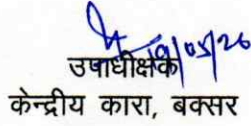 19/05/26
उपाधीक्षक
केन्द्रीय कारा, बक्सर